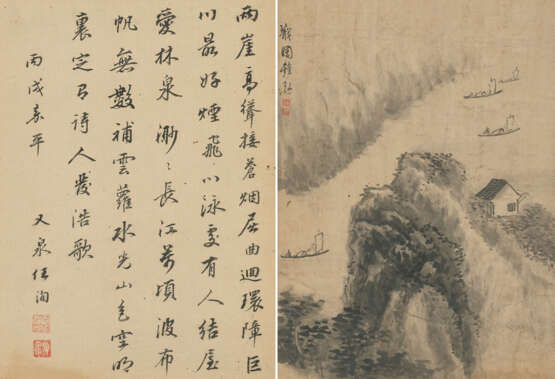 兩崖高聳接蒼烟屈曲迴環障巨
川最好飛泳處有人結屋
愛林泉渺〻長江萬頃波布
帆無數補雲蘿水光山色空明
裏定有詩人發浩歌
丙戌嘉平
又泉任洵